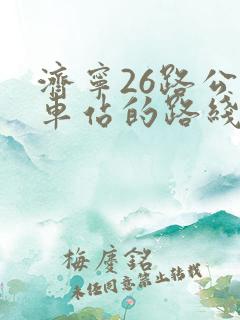 濟寧26路公
車佔的路綫
梅慶銘
未经同意禁止转载